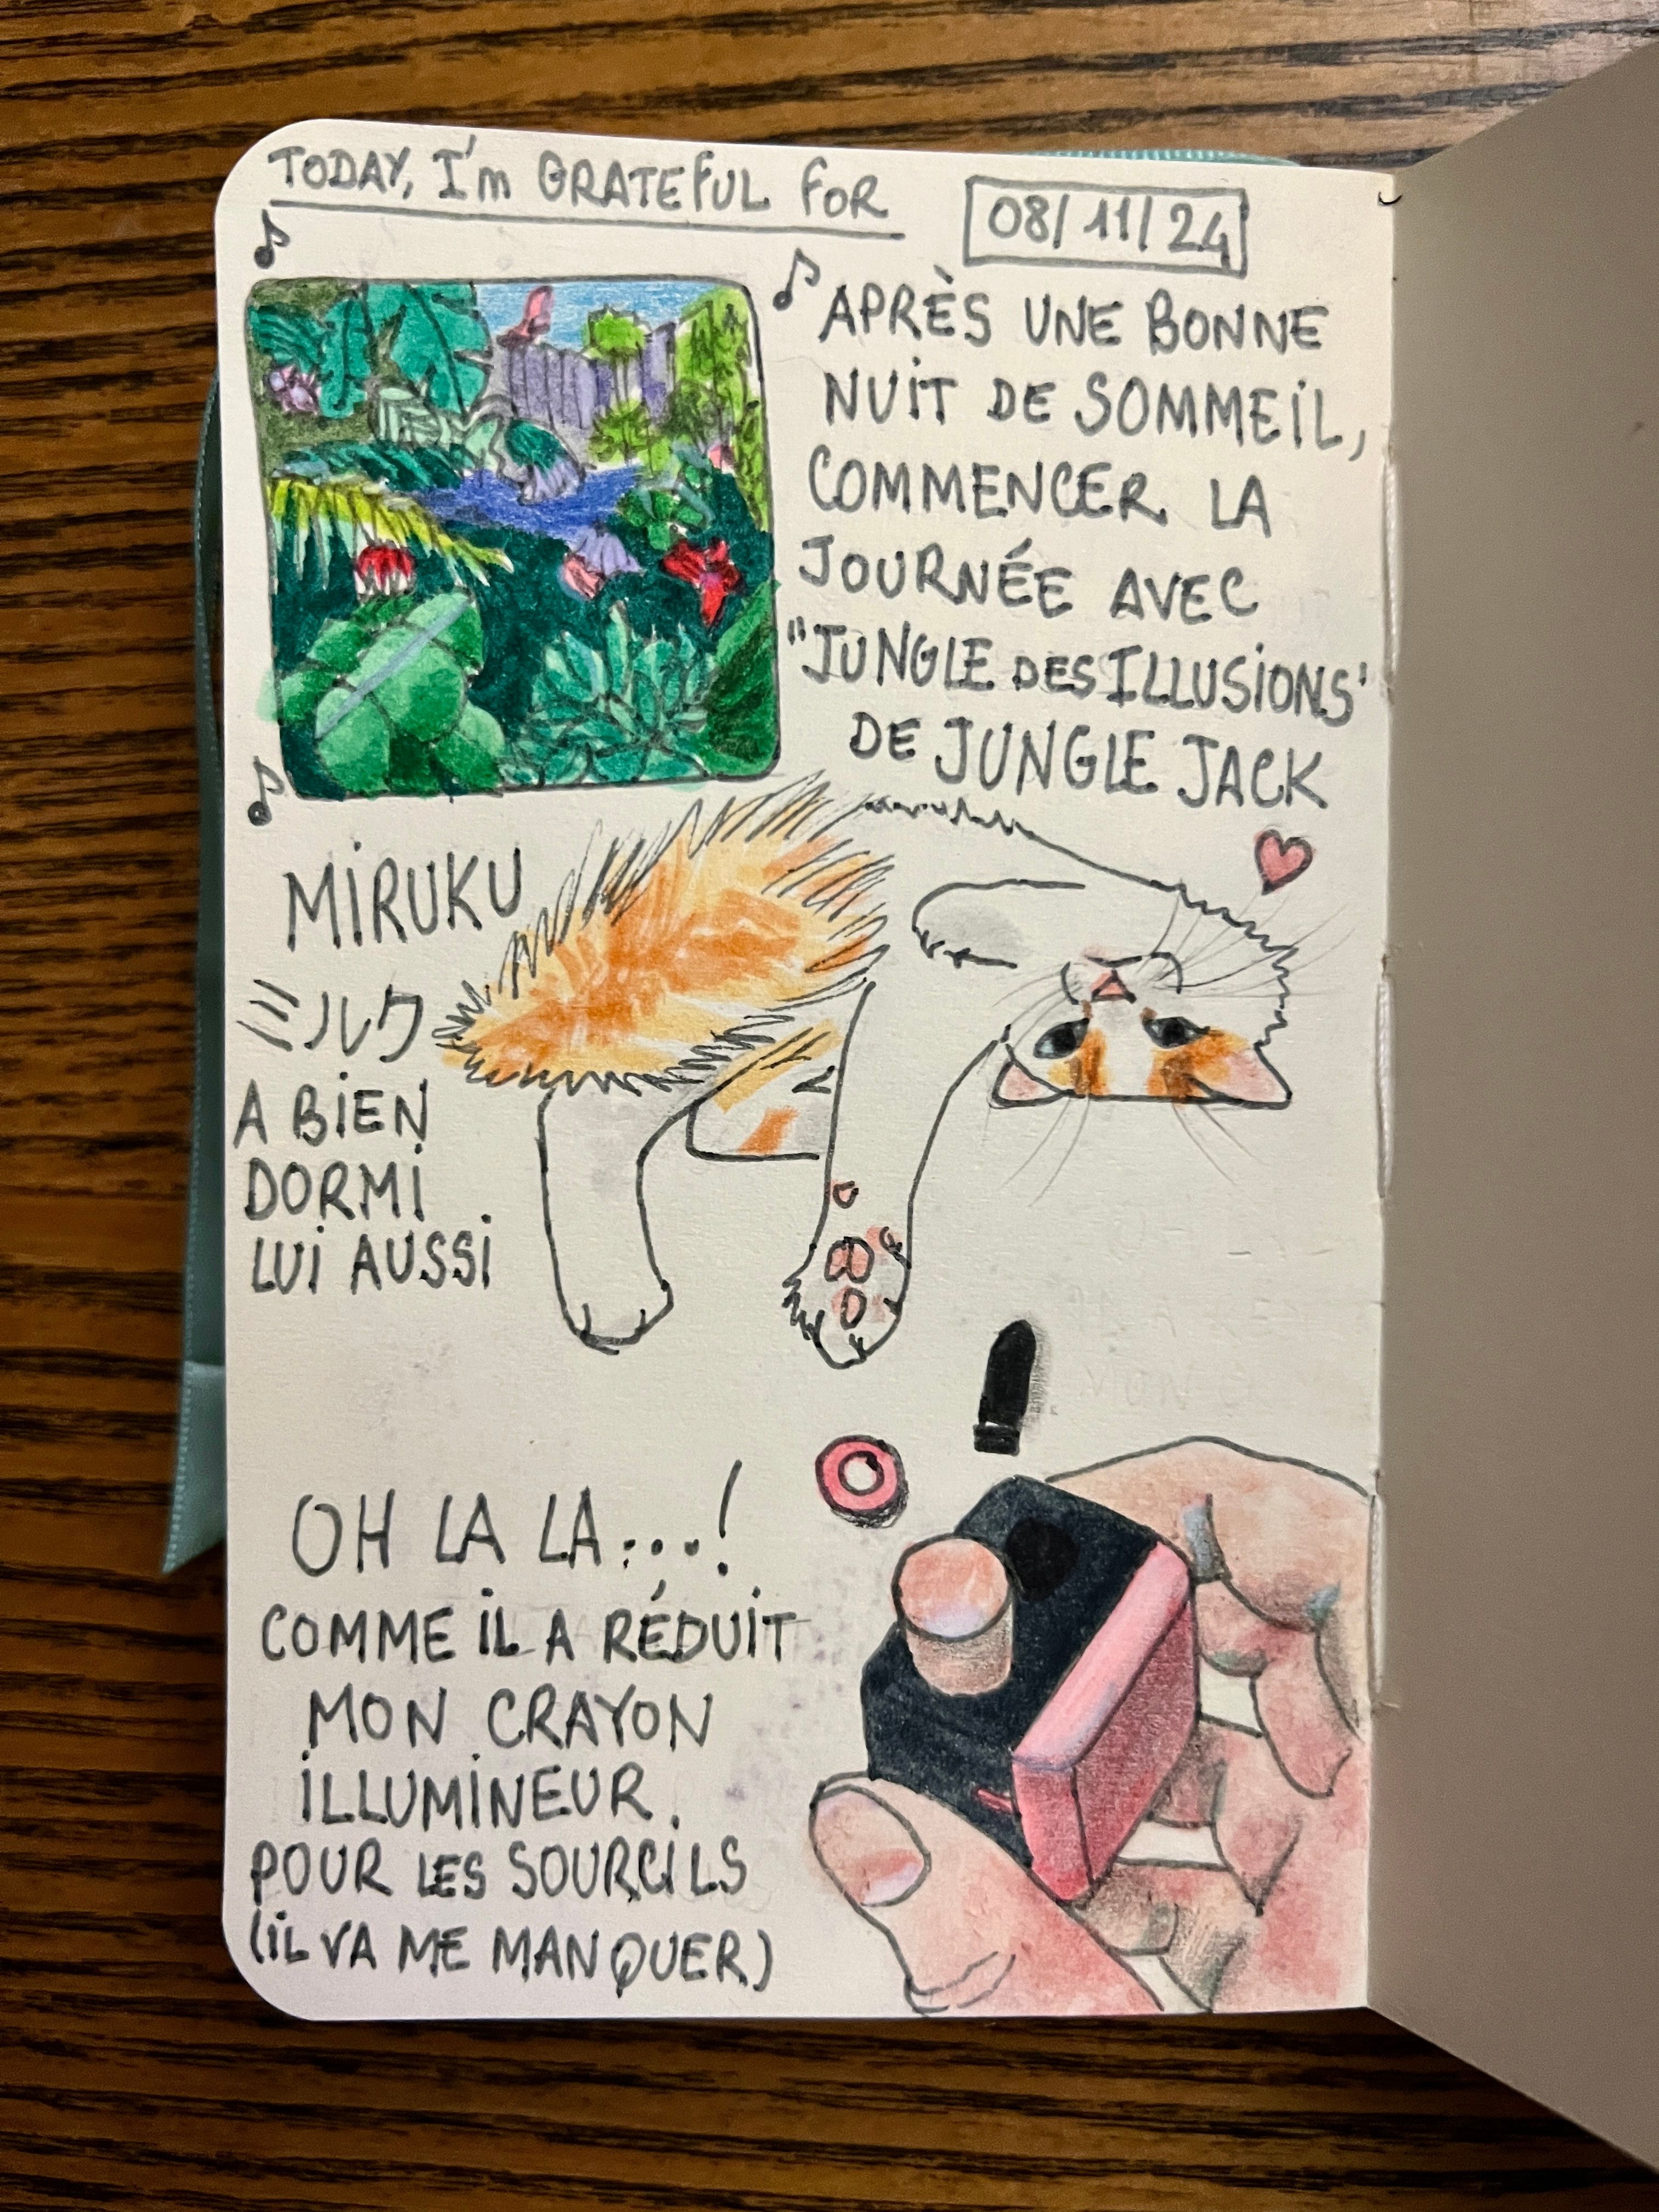 TODAY, I'm GRATEFUL FOR
08/11/24
APRÈS UNE BONNE
NUIT DE SOMMEIL,
COMMENCER LA
JOURNÉE AVEC
"JUNGLE DES ILLUSIONS'
DE JUNGLE JACK
MIRUKU
ミルク
A BIEN
DORMI
LUI AUSSI
OH LA LA...!
COMME IL A RÉDUIT
MON CRAYON
ILLUMINEUR.
POUR LES SOURCILS
(IL VA ME MANQUER)